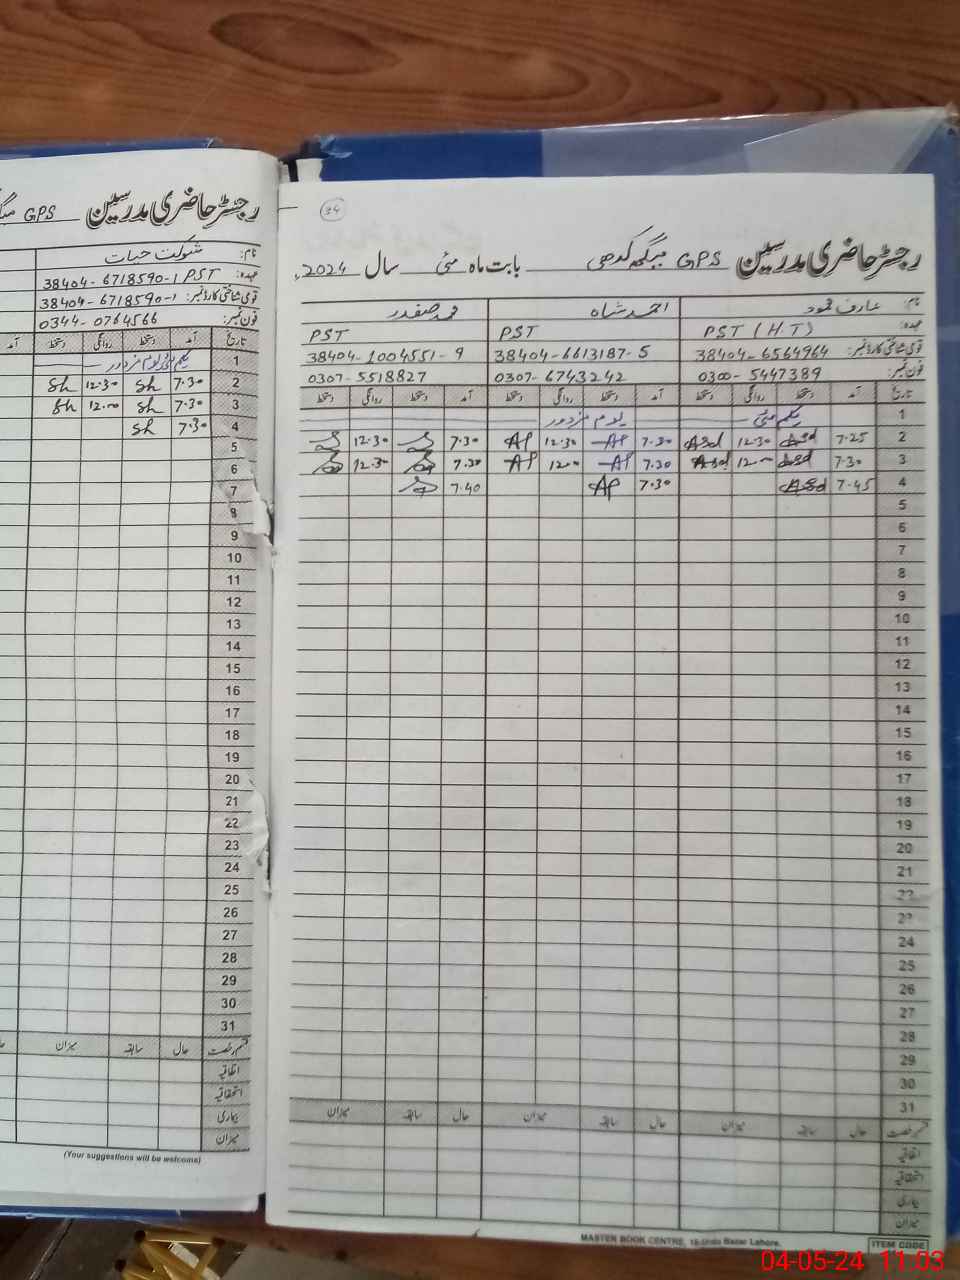 رجسٹر حاضری مدرسین GPS
نام: شوکت حیات
عہدہ: PST 38404-6718590-1
قومی شناختی کارڈ نمبر: 38404-6718590-1
فون نمبر: 0344-0764566
تاریخ آمد دستخط روانگی دستخط آمد
1 یکم مئی یوم مزدور
2 7.30 Sh 12.30 Sh
3 7.30 Sh 12.00 Sh
4 7.30 Sh
5
6
7
8
9
10
11
12
13
14
15
16
17
18
19
20
21
22
23
24
25
26
27
28
29
30
31
قسم رخصت حال سابقہ میزان
اتفاقیہ
استحقاقیہ
بیماری
میزان
(Your suggestions will be welcome)
34
رجسٹر حاضری مدرسین GPS بابت ماہ مئی سال 2024ء
نام: عارف محمود احمد شاہ محمد صفدر
عہدہ: PST (H.T) PST PST
قومی شناختی کارڈ نمبر: 38404-6564964 38404-6613187-5 38404-1004551-9
فون نمبر: 0300-5447389 0307-6743242 0307-5518827
تاریخ آمد دستخط روانگی دستخط آمد دستخط روانگی دستخط آمد دستخط روانگی دستخط
1 یکم مئی یوم مزدور
2 7.25 Asd 12.30 Asd 7.30 AP 12.30 AP 7.30 12.30
3 7.30 Asd 12.00 Asd 7.30 AP 12.00 AP 7.30 12.30
4 7.45 Asd 7.30 AP 7.40
5
6
7
8
9
10
11
12
13
14
15
16
17
18
19
20
21
22
23
24
25
26
27
28
29
30
31
قسم رخصت حال سابقہ میزان حال سابقہ میزان حال سابقہ میزان
اتفاقیہ
استحقاقیہ
بیماری
میزان
MASTER BOOK CENTRE, 18-Urdu Bazar Lahore.
ITEM CODE
04-05-24 11:03